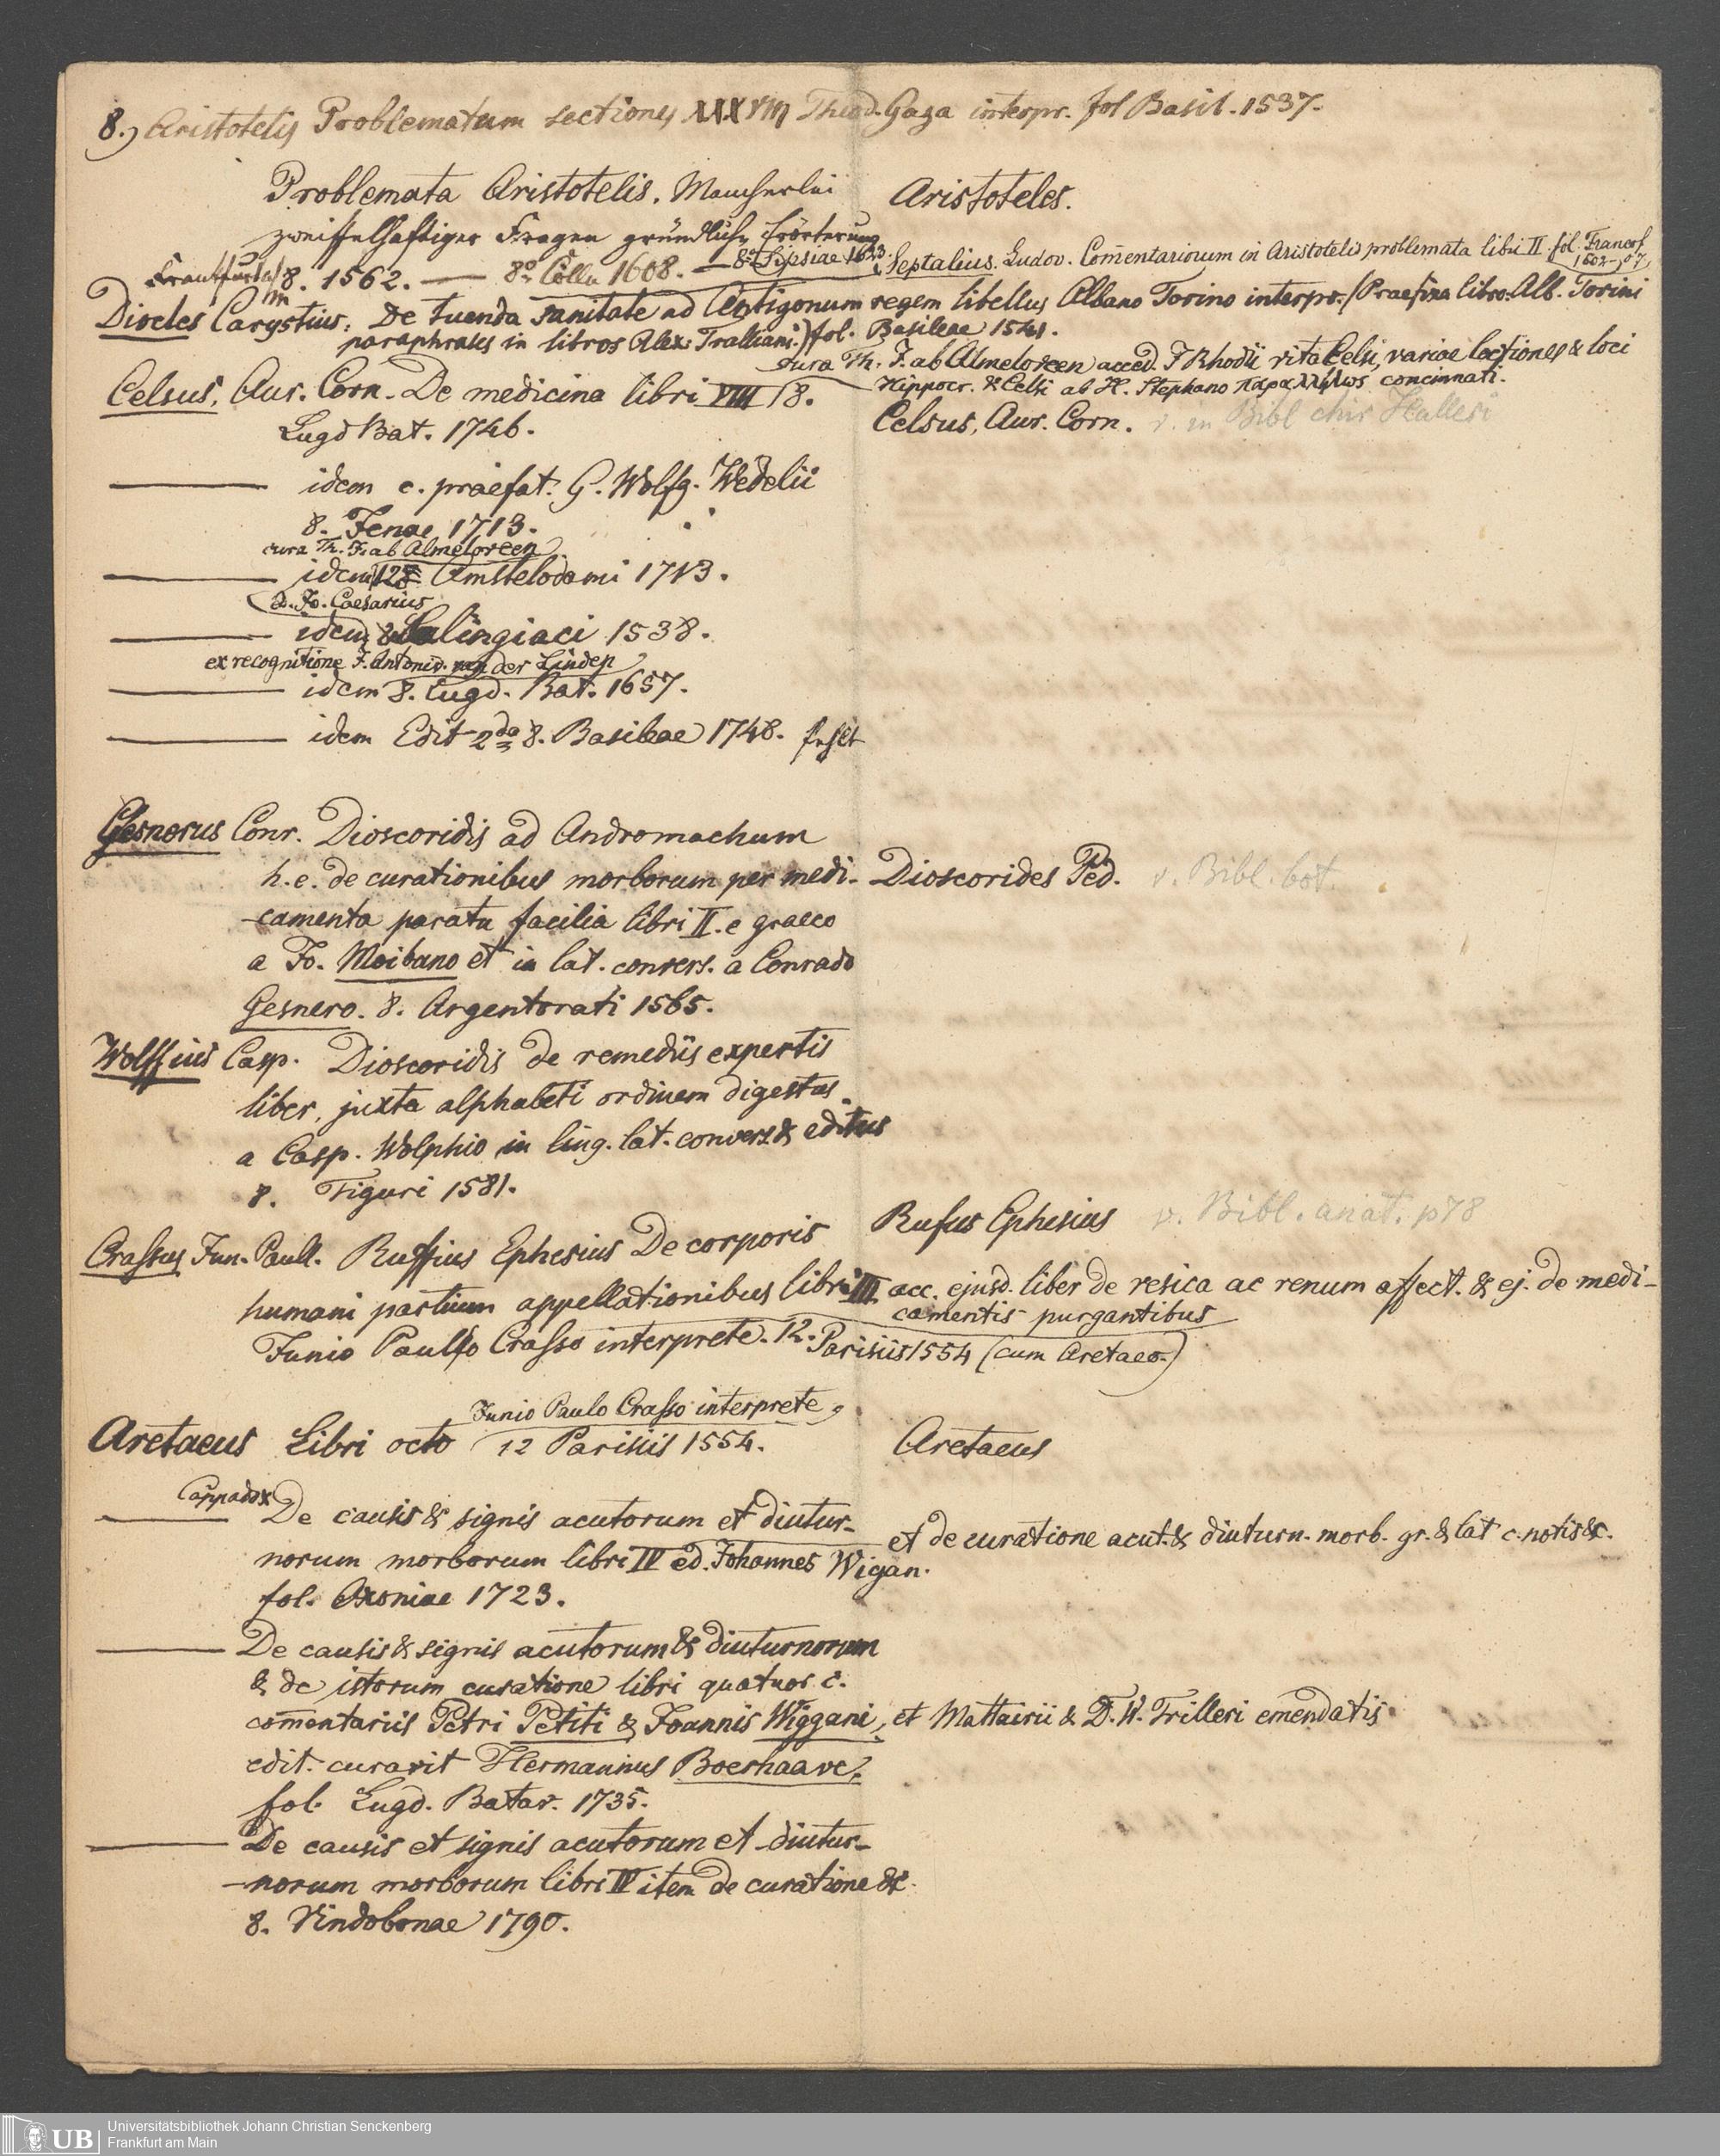 8.) Aristotelis Problematum sectiones XXXVIII Theod. Gaza interpr. fol Basil. 1537.
Problemata Aristotelis. Mancherlei
Aristoteles.
zweiffelhaftiger Fragen gründliche Erörterung
Frankfurt a/m 8. 1562. — 8o Cölln 1608. — 8o Lipsiae 1623.
Septalius. Ludov. Com̄entariorum in Aristotelis problemata libri II. fol. Francof. 1602–07.
Diocles Carystius, De tuenda sanitate ad Antigonum regem libellus Albano Torino interpr. (Praefixa libro: Alb. Torini
paraphrases in libros Alex: Tralliani.) fol. Basileae 1541.
cura Th. J. ab Almeloveen acced. J Rhodii vita Celsi, variae lectiones & loci
Hippocr. & Celsi ab H. Stephano παραλλήλως concinnati.
Celsus, Aur. Corn. De medicina libri VIII 8.
Lugd Bat. 1746.
Celsus, Aur. Corn. v. in Bibl chir Halleri
——— idem c. praefat. G. Wolfg. Wedelii
8. Jenae 1713.
cura Th. J. ab Almeloveen
——— idem 12o Amstelodami 1713.
a. Jo. Caesarius
——— idem 8 Salingiaci 1538.
ex recognitione J. Antonid. van der Linden
——— idem 8. Lugd. Bat. 1657.
——— idem Edit 2da 8. Basileae 1748.
Gesnerus Conr. Dioscoridis ad Andromachum
h. e. de curationibus morborum per medi-
Dioscorides Ped. v. Bibl. bot.
-camenta paratu facilia libri II. e graeco
a Jo. Moibano et in lat. convers. a Conrado
Gesnero. 8. Argentorati 1565.
Wolffius Casp. Dioscoridis de remediis expertis
liber, juxta alphabeti ordinem digestus
a Casp. Wolphio in ling. lat. convers. & editus
8. Tiguri 1581.
Rufus Ephesius v. Bibl. anat. p 78
Crassus Jun. Paull. Ruffius Ephesius De corporis
humani partium appellationibus libri III. acc. ejusd. liber de vesica ac renum affect. & ej. de medi-
camentis purgantibus
Junio Paullo Crasso interprete. 12. Parisiis 1554 (cum Aretaeo.)
Junio Paulo Crasso interprete,
Aretaeus Libri octo 12 Parisiis 1554.
Aretaeus
Cappadox
——— De causis & signis acutorum et diutur-
et de curatione acut. & diuturn. morb. gr. & lat c. notis &c.
norum morborum libri IV ed. Johannes Wigan.
fol. Oxoniae 1723.
——— De causis & signis acutorum & diuturnorum
& de istorum curatione libri quatuor c.
com̄entariis Petri Petiti & Joannis Wiggani, et Mattairii & D. W. Trilleri emendatis
edit. curavit Hermannus Boerhaave.
fol. Lugd. Batav. 1735.
——— De causis et signis acutorum et diutur-
-norum morborum libri IV item de curatione &c.
8. Vindobonae 1790.
UB Universitätsbibliothek Johann Christian Senckenberg
Frankfurt am Main